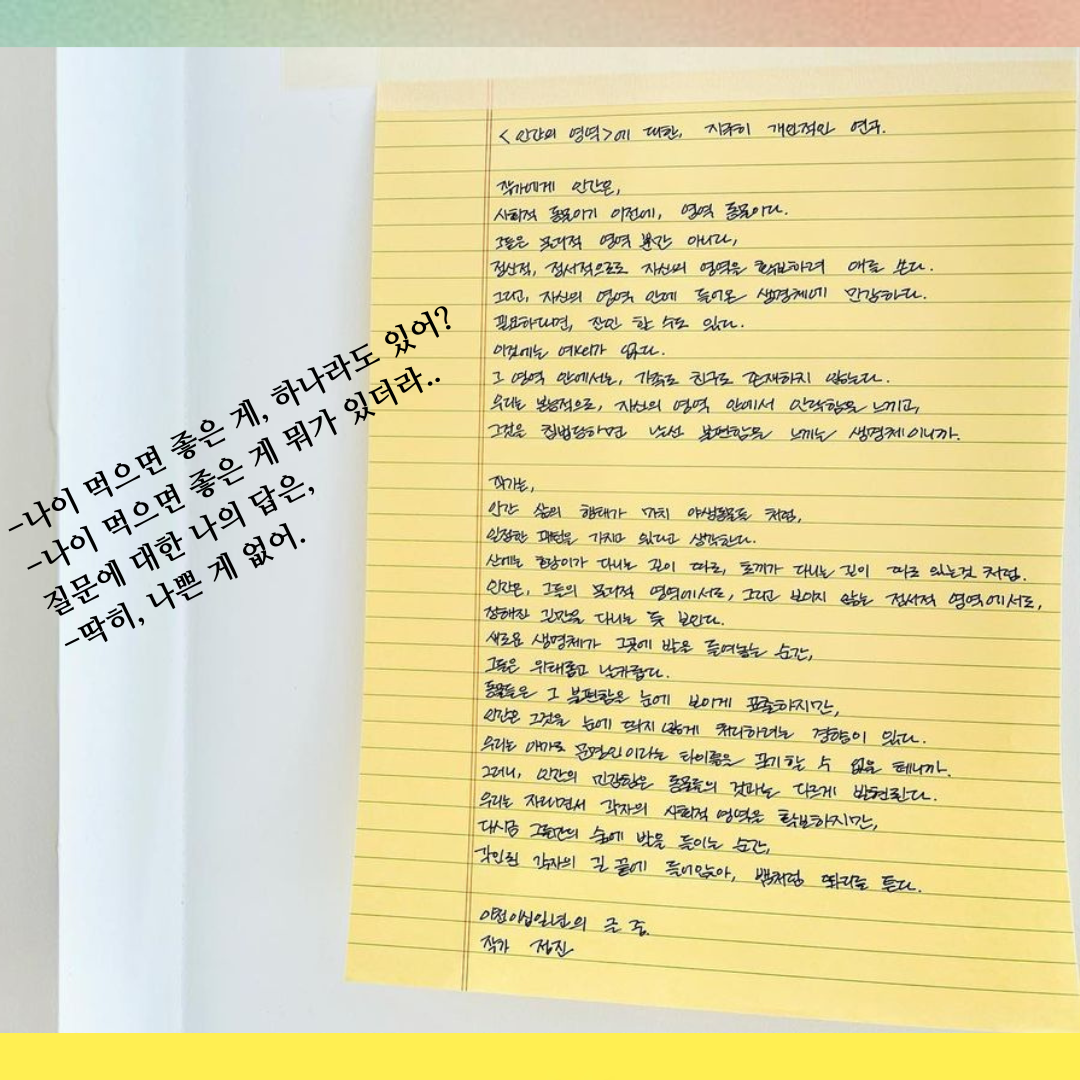 -나이 먹으면 좋은 게, 하나라도 있어?
-나이 먹으면 좋은 게 뭐가 있더라..
질문에 대한 나의 답은,
-딱히, 나쁜 게 없어.
<인간의 영역>에 대한, 지극히 개인적인 연구.
작가에게 인간은,
사회적 동물이기 이전에, 영역 동물이다.
그들은 물리적 영역 뿐만 아니라,
정신적, 정서적으로도 자신의 영역을 확보하려 애를 쓴다.
그리고, 자신의 영역 안에 들어온 생명체에 민감하다.
필요하다면, 잔인 할 수도 있다.
이것에는 예외가 없다.
그 영역 안에서는, 가족도 친구도 존재하지 않는다.
우리는 본능적으로, 자신의 영역 안에서 안락함을 느끼고,
그것을 침범당하면 낯선 불편함을 느끼는 생명체이니까.
작가는,
인간 삶의 형태가 마치 야생동물들 처럼,
일정한 패턴을 가지고 있다고 생각한다.
산에는 호랑이가 다니는 길이 따로, 토끼가 다니는 길이 따로 있는것 처럼.
인간은, 그들의 물리적 영역에서도, 그리고 보이지 않는 정서적 영역에서도,
정해진 길만을 다니는 듯 보인다.
새로운 생명체가 그곳에 발을 들여놓는 순간,
그들은 위태롭고 날카롭다.
동물들은 그 불편함을 눈에 보이게 표출하지만,
인간은 그것을 눈에 띄지 않게 처리하려는 경향이 있다.
우리는 애가로 문명인이라는 타이틀을 포기할 수 없을 테니까.
그러니, 인간의 민감함은 동물들의 것과는 다르게 발현된다.
우리는 자라면서 각자의 사회적 영역을 확보하지만,
다시금 그들만의 숲에 발을 들이는 순간,
각인된 각자의 길 끝에 들어앉아, 뱀처럼 똬리를 튼다.
이천이십일년의 금 중.
작가 정진